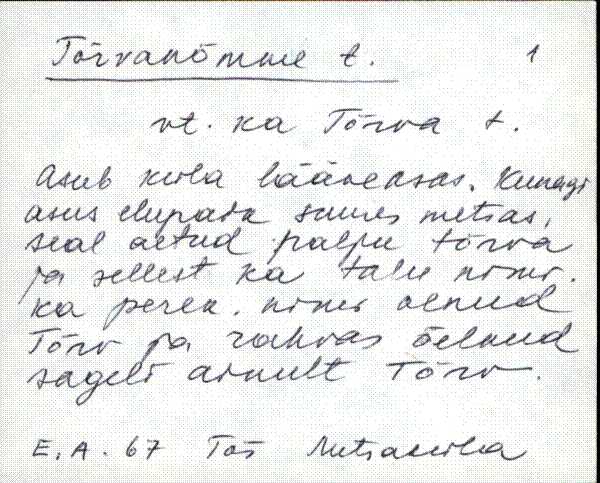 Tõrvanõmme t. 1
vt. ka Tõrva t.
Asub küla lääneosas. Kunagi
asus elupaik suures metsas,
seal aetud palju tõrva
ja sellest ka talu nimi.
Ka peren. nimi olnud
Tõrv ja rahvas öelnud
sageli ainult Tõrv.
E. A. 67 Tõs Metsaküla